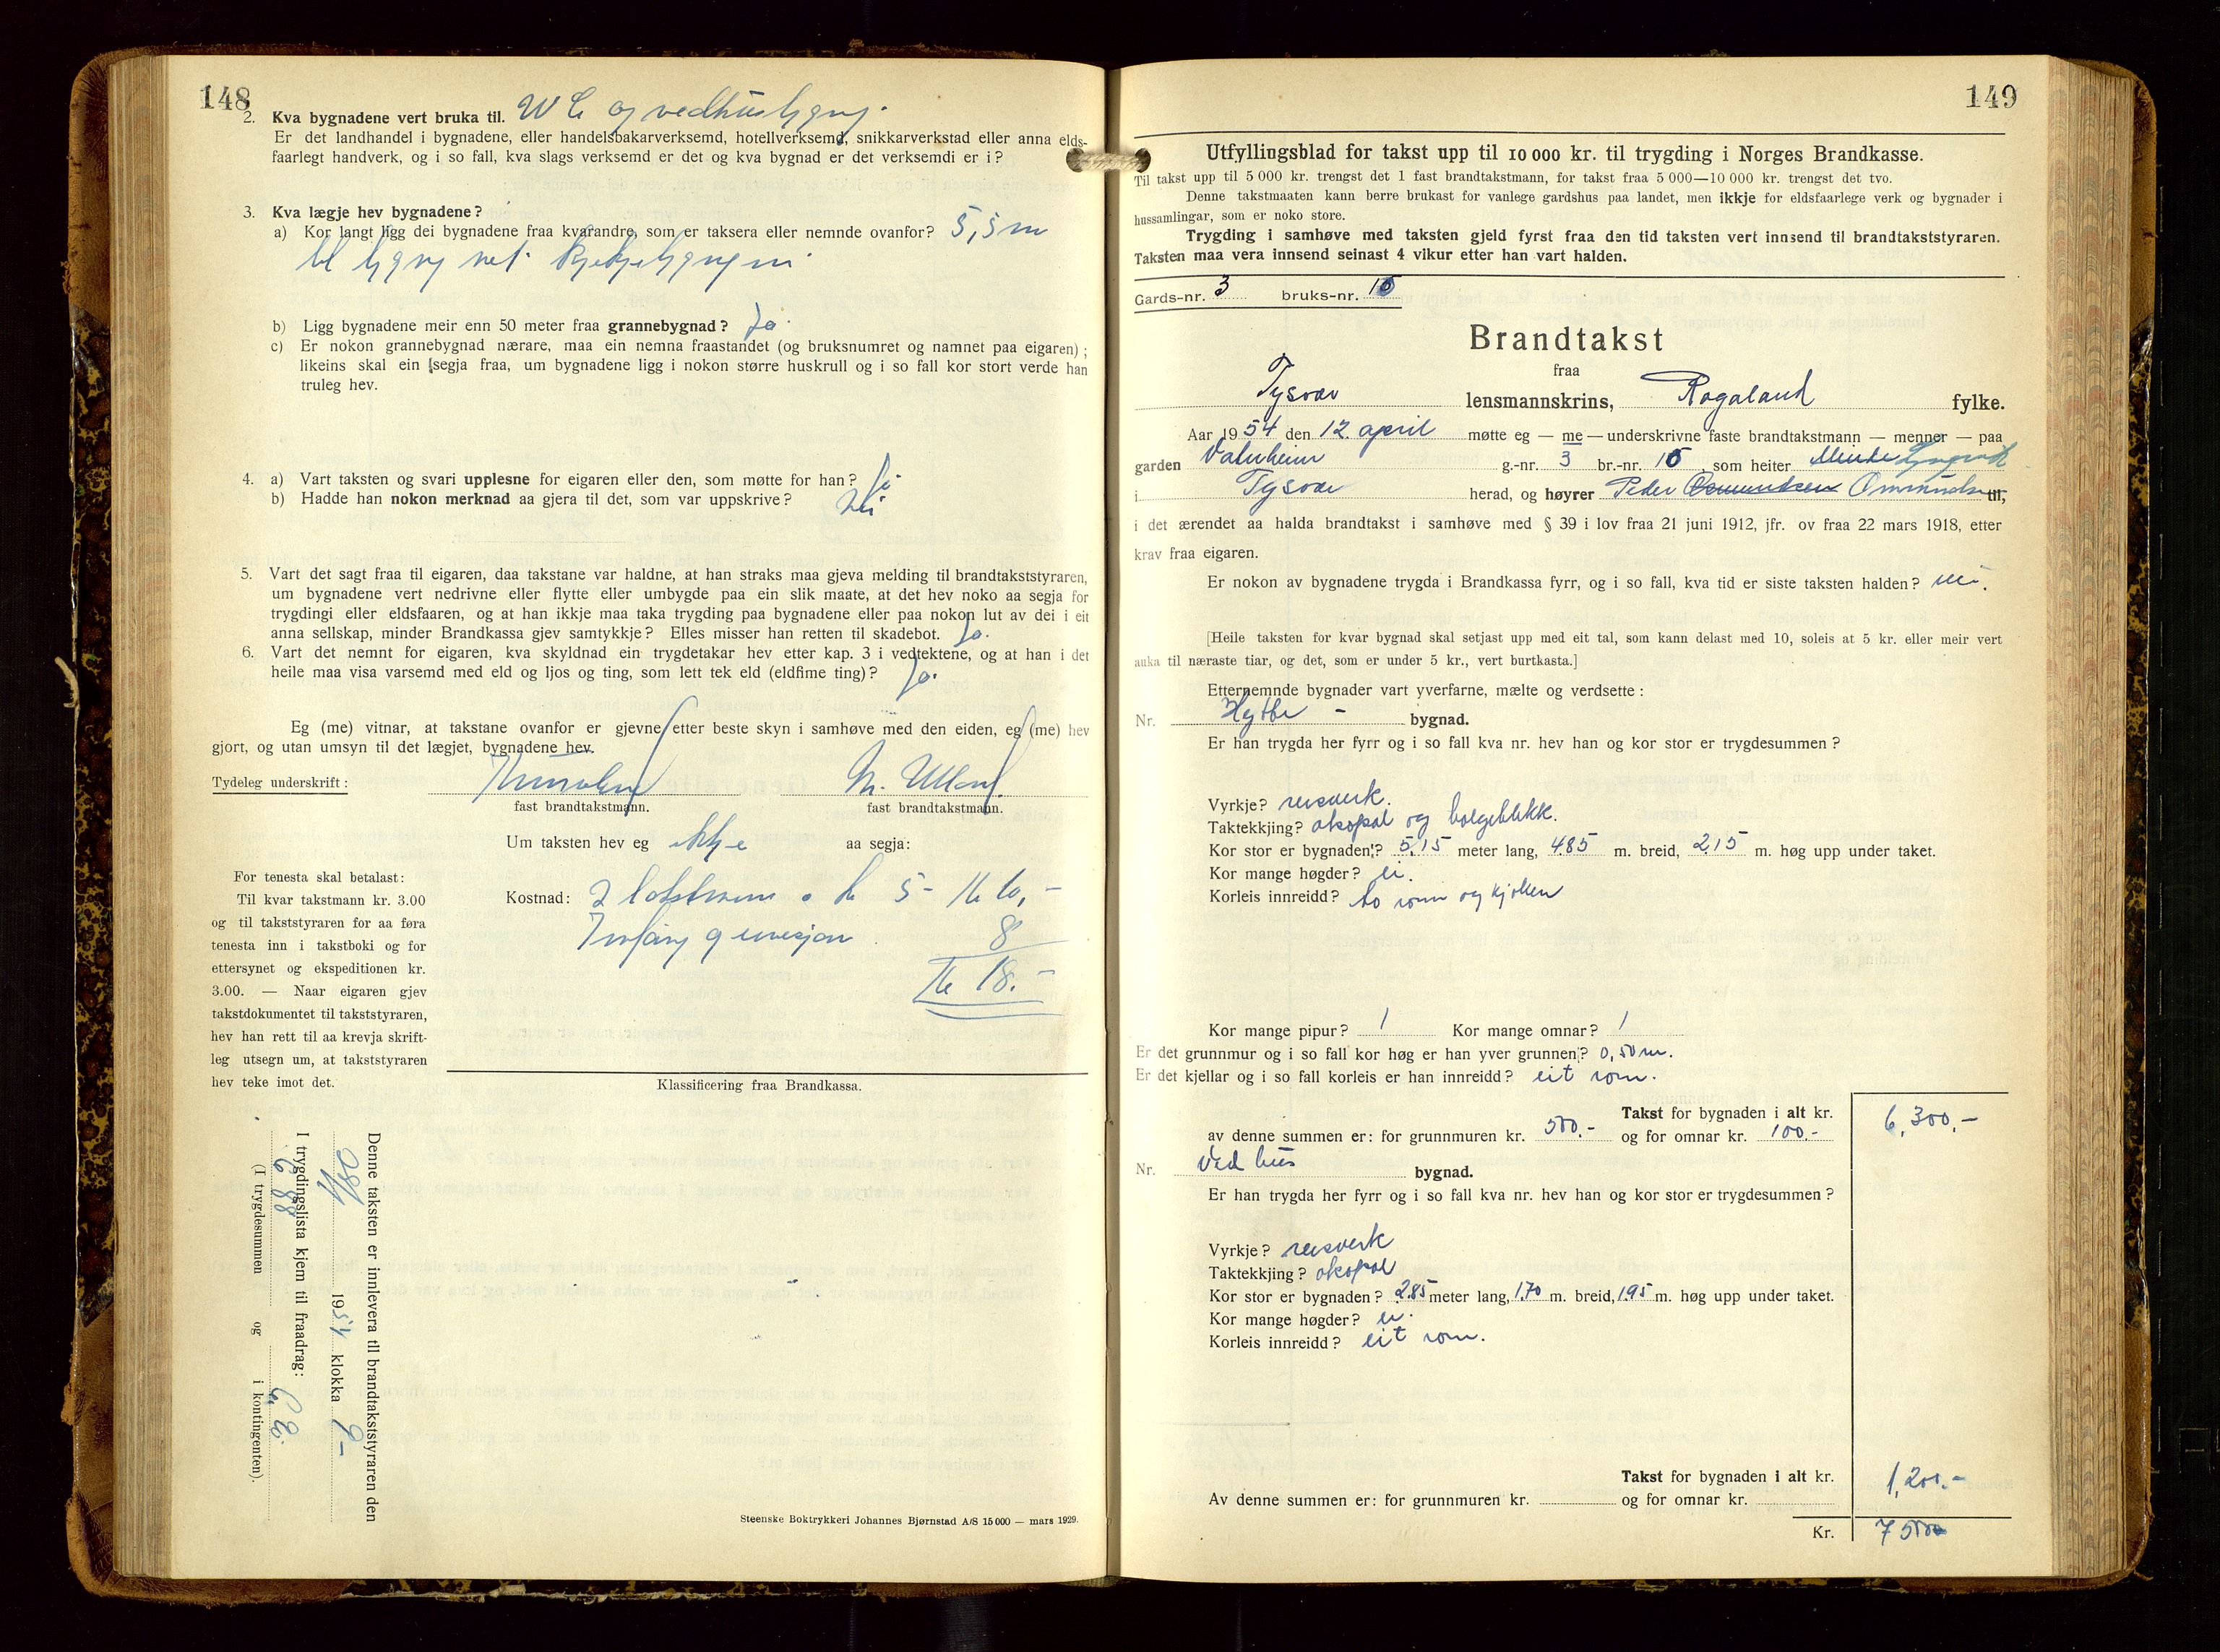 148
2. Kva bygnadene vert bruka til. W C og vedhus
Er det landhandel i bygnadene, eller handelsbakarverksemd, hotellverksemd, snikkarverkstad eller anna elds-
faarlegt handverk, og i so fall, kva slags verksemd er det og kva bygnad er det verksemdi er i?
3. Kva lægje hev bygnadene?
a) Kor langt ligg dei bygnadene fraa kvarandre, som er taksera eller nemnde ovanfor? 5,5 m
b) Ligg bygnadene meir enn 50 meter fraa grannebygnad? Ja.
c) Er nokon grannebygnad nærare, maa ein nemna fraastandet (og bruksnumret og namnet paa eigaren);
likeins skal ein segja fraa, um bygnadene ligg i nokon større huskrull og i so fall kor stort verde han
truleg hev.
4. a) Vart taksten og svari upplesne for eigaren eller den, som møtte for han? Ja.
b) Hadde han nokon merknad aa gjera til det, som var uppskrive? Nei
5. Vart det sagt fraa til eigaren, daa takstane var haldne, at han straks maa gjeva melding til brandtakststyraren,
um bygnadene vert nedrivne eller flytte eller umbygde paa ein slik maate, at det hev noko aa segja for
trygdingi eller eldsfaaren, og at han ikkje maa taka trygding paa bygnadene eller paa nokon lut av dei i eit
anna sellskap, minder Brandkassa gjev samtykkje? Elles misser han retten til skadebot. Ja.
6. Vart det nemnt for eigaren, kva skyldnad ein trygdetakar hev etter kap. 3 i vedtektene, og at han i det
heile maa visa varsemd med eld og ljos og ting, som lett tek eld (eldfime ting)? Ja.
Eg (me) vitnar, at takstane ovanfor er gjevne etter beste skyn i samhøve med den eiden, eg (me) hev
gjort, og utan umsyn til det lægjet, bygnadene hev.
Tydeleg underskrift:
fast brandtakstmann. fast brandtakstmann.
Um taksten hev eg ikkje aa segja:
For tenesta skal betalast:
Til kvar takstmann kr. 3.00
og til takststyraren for aa føra
tenesta inn i takstboki og for
ettersynet og ekspeditionen kr.
3.00. — Naar eigaren gjev
takstdokumentet til takststyraren,
hev han rett til aa krevja skrift-
leg utsegn um, at takststyraren
hev teke imot det.
Kostnad: 2 takstmenn a kr 5- kr 10,-
8
kr 18.-
Klassificering fraa Brandkassa.
Denne taksten er innlevera til brandtakststyraren den
1954 klokka 9-
I trygdingslista kjem til fraadrag:
(I trygdesummen og i kontingenten).
Steenske Boktrykkeri Johannes Bjørnstad A/S 15 000 — mars 1929.
149
Utfyllingsblad for takst upp til 10 000 kr. til trygding i Norges Brandkasse.
Til takst upp til 5 000 kr. trengst det 1 fast brandtakstmann, for takst fraa 5 000—10 000 kr. trengst det tvo.
Denne takstmaaten kann berre brukast for vanlege gardshus paa landet, men ikkje for eldsfaarlege verk og bygnader i
hussamlingar, som er noko store.
Trygding i samhøve med taksten gjeld fyrst fraa den tid taksten vert innsend til brandtakststyraren.
Taksten maa vera innsend seinast 4 vikur etter han vart halden.
Gards-nr. 3 bruks-nr. 15
Brandtakst
fraa
Tysvær lensmannskrins, Rogaland fylke.
Aar 1954 den 12. april møtte eg — me — underskrivne faste brandtakstmann — menner — paa
garden Valnheim g.-nr. 3 br.-nr. 15, som heiter
i Tysvær herad, og høyrer Peder Osmundsen Ommundsen til,
i det ærendet aa halda brandtakst i samhøve med § 39 i lov fraa 21 juni 1912, jfr. ov fraa 22 mars 1918, etter
krav fraa eigaren.
Er nokon av bygnadene trygda i Brandkassa fyrr, og i so fall, kva tid er siste taksten halden? nei.
[Heile taksten for kvar bygnad skal setjast upp med eit tal, som kann delast med 10, soleis at 5 kr. eller meir vert
auka til næraste tiar, og det, som er under 5 kr., vert burtkasta.]
Etternemnde bygnader vart yverfarne, mælte og verdsette:
Nr. Hytte - bygnad.
Er han trygda her fyrr og i so fall kva nr. hev han og kor stor er trygdesummen?
Vyrkje? reisverk.
Taktekkjing? akopal og bølgeblikk.
Kor stor er bygnaden? 5.15 meter lang, 4.85 m. breid, 2.15 m. høg upp under taket.
Kor mange høgder? ei.
Korleis innreidd? to rom og kjøken
Kor mange pipur? 1 Kor mange omnar? 1
Er det grunnmur og i so fall kor høg er han yver grunnen? 0,50 m.
Er det kjellar og i so fall korleis er han innreidd? eit rom.
Takst for bygnaden i alt kr. 6,300,-
av denne summen er: for grunnmuren kr. 500.- og for omnar kr. 100.-
Nr. Ved hus bygnad.
Er han trygda her fyrr og i so fall kva nr. hev han og kor stor er trygdesummen?
Vyrkje? reisverk
Taktekkjing? akopal
Kor stor er bygnaden? 2.85 meter lang, 1.70 m. breid, 1.95 m. høg upp under taket.
Kor mange høgder? ei.
Korleis innreidd? eit rom.
Takst for bygnaden i alt kr. 1,200.-
Av denne summen er: for grunnmuren kr. og for omnar kr.
Kr. 7500